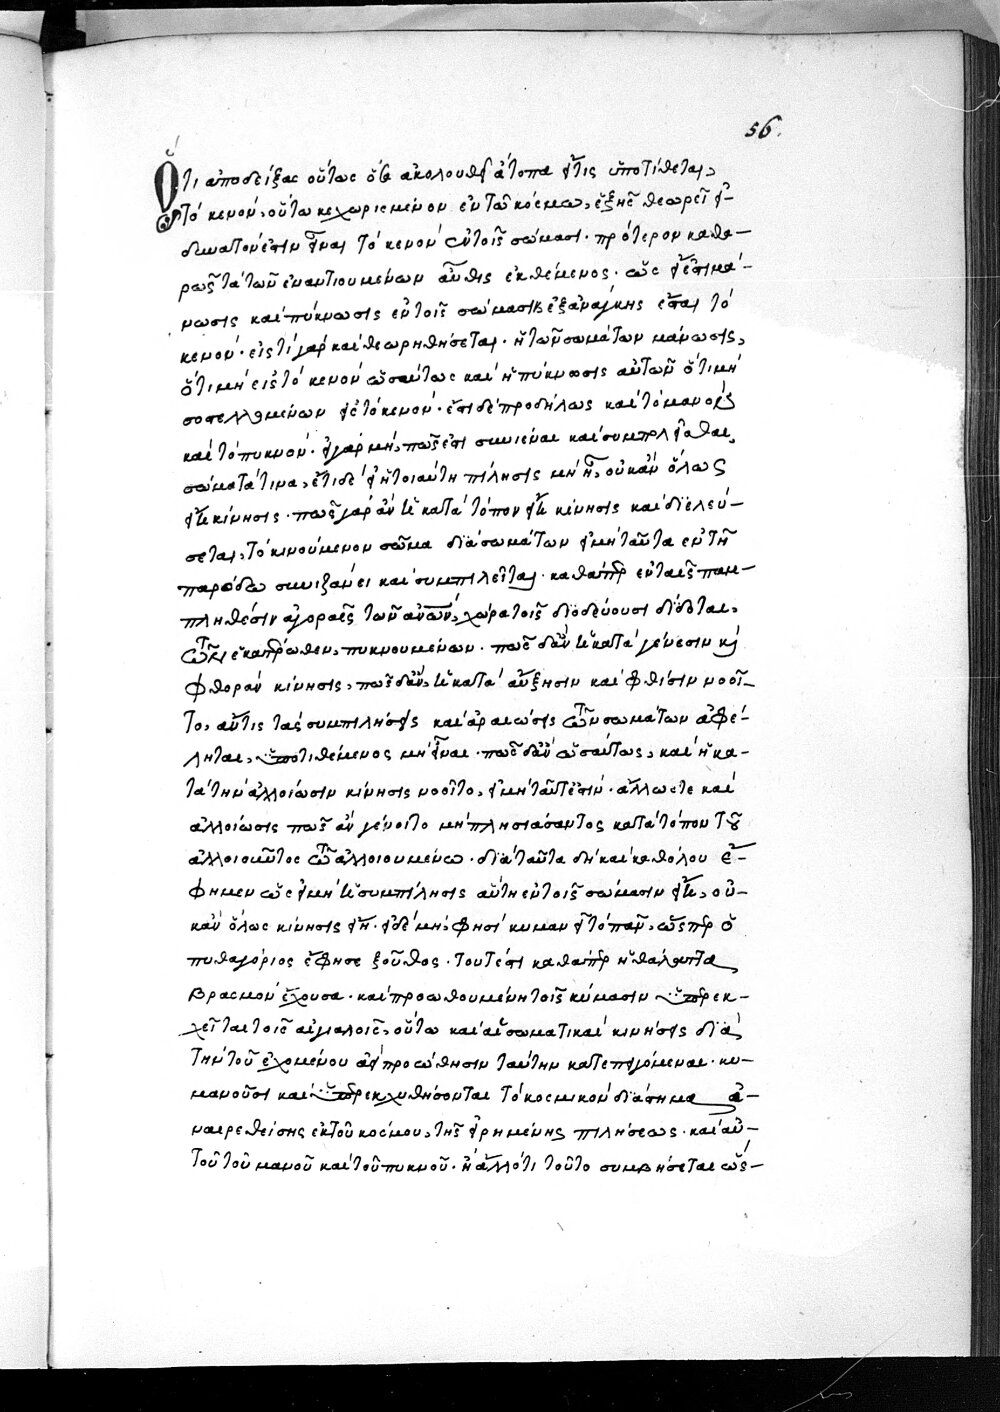 56.
Ὅτι ἀποδείξας οὕτως ὅσα ἀκολουθεῖ ἄτοπα εἴ τις ὑποτίθεται,
τὸ κενὸν, οὕτω κεχωρισμένον ἐν τῷ κόσμῳ, ἑξῆς θεωρεῖ εἰ
δυνατόν ἐστιν εἶναι τὸ κενὸν ἐν τοῖς σώμασι· πρότερον καθα-
ρῶς τὰ τῶν ἐναντιουμένων αὖθις ἐκθέμενος· ὡς εἰ ἔστι μά-
νωσις καὶ πύκνωσις ἐν τοῖς σώμασιν ἐξανάγκης ἔσται τὸ
κενόν· εἰς τί γὰρ καὶ θεωρηθήσεται· ἡ τῶν σωμάτων μάνωσις,
ὅτι μὴ εἰς τὸ κενόν ὡσαύτως καὶ ἡ πύκνωσις αὐτῶν ὅτι μὴ
συστελλομένων εἰς τὸ κενόν· ἔστι δὲ προδήλως καὶ τὸ μανὸν
καὶ τὸ πυκνόν· εἰ γὰρ μή, πῶς ἔστι συνιέναι καὶ συμπιλεῖσθαι,
σώματά τινα, ἔτι δὲ εἰ ἡ τοιαύτη πίλησις μὴ ᾖ, οὐκ ἂν ὅλως
εἴη κίνησις· πῶς γὰρ ἂν ἡ κατὰ τόπον εἴη κίνησις καὶ διελεύ-
σεται, τὸ κινούμενον σῶμα διὰ σωμάτων εἰ μὴ ταῦτα ἐν τῇ
παρόδῳ συνιζάνει καὶ συμπιλεῖται· καθάπερ ἐν ταῖς παμ-
πληθέσιν ἀγοραῖς τῶν ἀνθρώπων, χώρα τοῖς διοδεύουσι δίδοται,
τῶν ἑκατέρωθεν, πυκνουμένων· πῶς δ' ἂν ἡ κατὰ γένεσιν καὶ
φθορὰν κίνησις, πῶς δ' ἂν, ἡ κατὰ αὔξησιν καὶ φθίσιν νοοῖ-
το, ἄν τις τὰς συμπιλήσεις καὶ ἀραιώσεις τῶν σωμάτων ἀφέ-
ληται, ὑποτιθέμενος μὴ εἶναι· πῶς δ' ἂν ὡσαύτως, καὶ ἡ κα-
τὰ τὴν ἀλλοίωσιν κίνησις νοοῖτο, εἰ μὴ ταῦτ' ἐστίν· ἄλλως τε καὶ
ἀλλοίωσις πῶς ἂν γένοιτο μὴ πλησιάσαντος κατὰ τόπον τοῦ
ἀλλοιοῦντος τῷ ἀλλοιουμένῳ· διὰ ταῦτα δὴ καὶ καθόλου ἔ-
φημεν ὡς εἰ μὴ ἡ συμπίλησις αὕτη ἐν τοῖς σώμασιν εἴη, οὐ-
κ ἂν ὅλως κίνησις εἴη· εἰ δὲ μή, φησὶ κυμανεῖ τὸ πᾶν, ὥσπερ ὁ
πυθαγόριος ἔφησε ξοῦθος· τουτέστι καθάπερ ἡ θάλαττα
βρασμὸν ἔχουσα· καὶ προωθουμένη τοῖς κύμασιν ὑπερεκ-
χεῖται τοῖς αἰγιαλοῖς, οὕτω καὶ αἱ σωματικαὶ κινήσεις διὰ
τὴν τοῦ ἐχομένου ἀεὶ προώθησιν ταύτην κατεπειγόμεναι· κυ-
μανοῦσι καὶ ὑπερεκχυθήσονται τὸ κοσμικὸν διάστημα ἀ-
ναιρεθείσης ἐκ τοῦ κόσμου, τῆς εἰρημένης πιλήσεως· καὶ αὐ-
τοῦ τοῦ μανοῦ καὶ τοῦ πυκνοῦ· ἢ ἄλλό τι τοῦτο συμβήσεται ὡς-